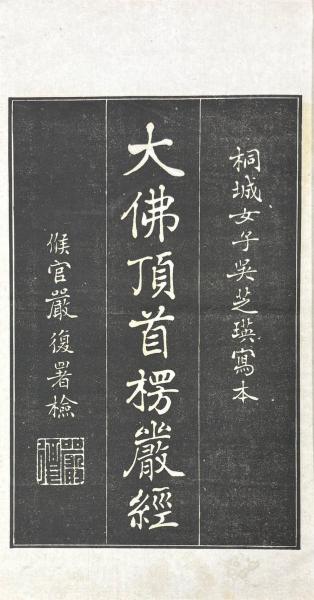 桐城女子吳芝瑛寫本
大佛頂首楞嚴經
候官嚴復署檢